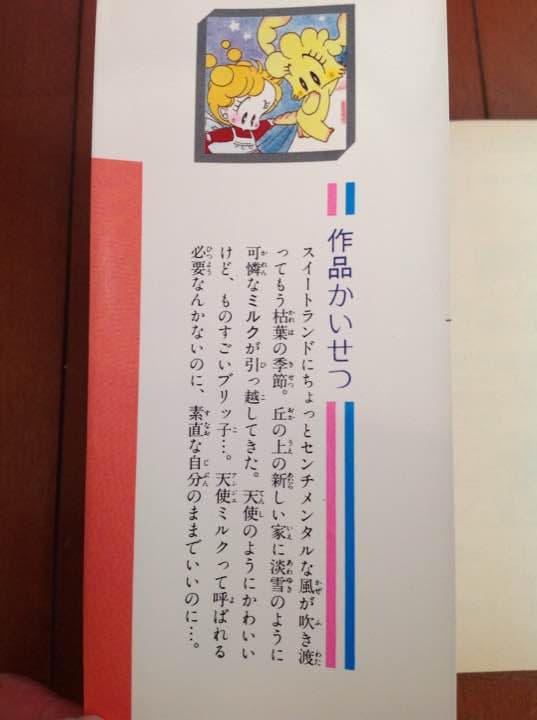 作品かいせつ
スイートランドにちょっとセンチメンタルな風が吹き渡
ってもう枯葉の季節。丘の上の新しい家に淡雪のように
可憐なミルクが引っ越してきた。天使のようにかわいい
けど、ものすごいブリッ子…。天使ミルクって呼ばれる
必要なんかないのに、素直な自分のままでいいのに…。